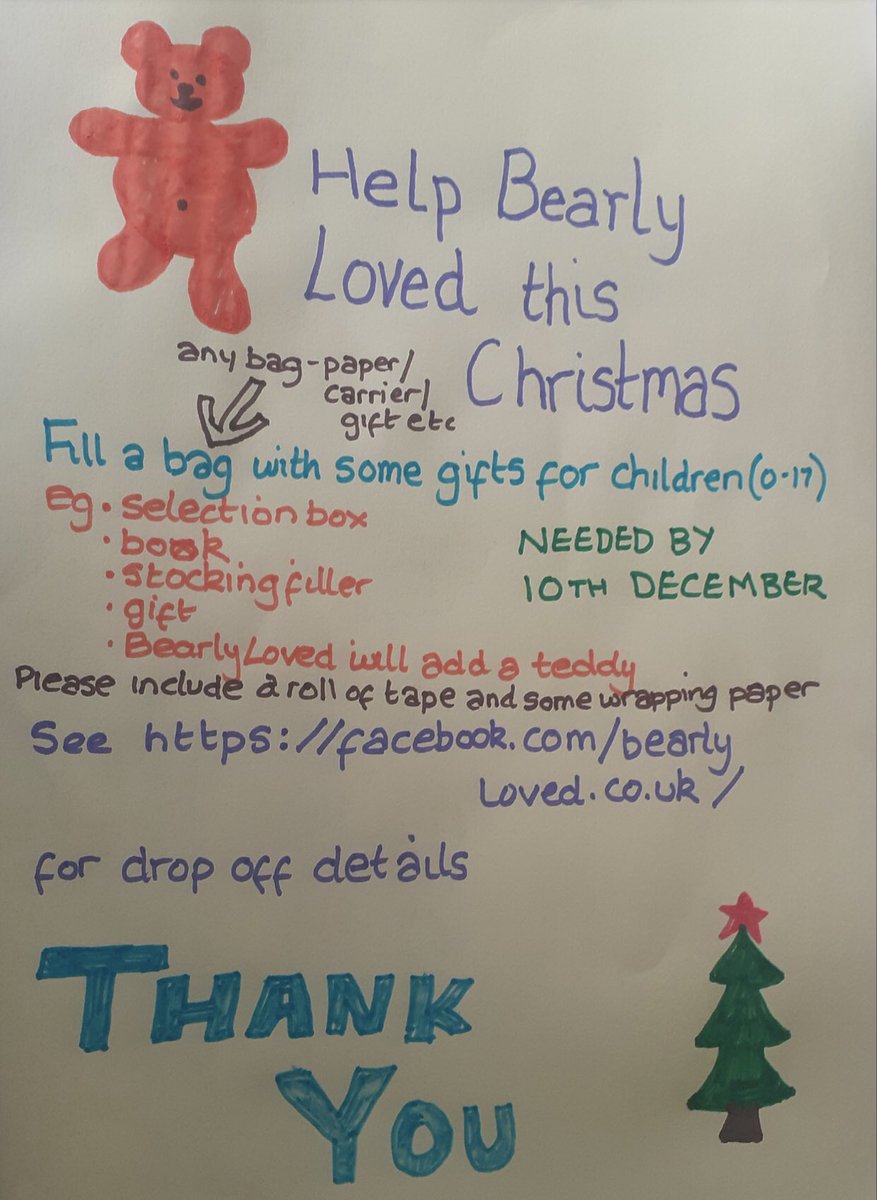 Help Bearly
Loved this
Christmas
any bag - paper/
carrier/
gift etc
Fill a bag with some gifts for children (0-17)
Eg • selection box
• book
• stocking filler
• gift
• Bearly Loved will add a teddy
NEEDED BY
10TH DECEMBER
Please include a roll of tape and some wrapping paper
See https://facebook.com/bearly
loved.co.uk/
for drop off details
THANK
YOU